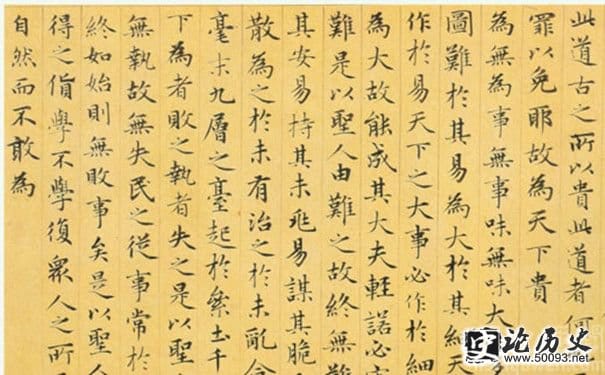 此道古之所以貴此道者何
罪以免耶故為天下貴
為無為事無事味無味大
圖難於其易為大於其細天
作於易天下之大事必作於細
為大故能成其大夫輕諾必
難是以聖人由難之故終無難
其安易持其未兆易謀其脆
散為之於未有治之於未亂合
毫末九層之臺起於累土千
下為者敗之執者失之是以聖
無執故無失民之從事常於
終如始則無敗事矣是以聖人
得之貨學不學復眾人之所
自然而不敢為
论历史
www.50093.net